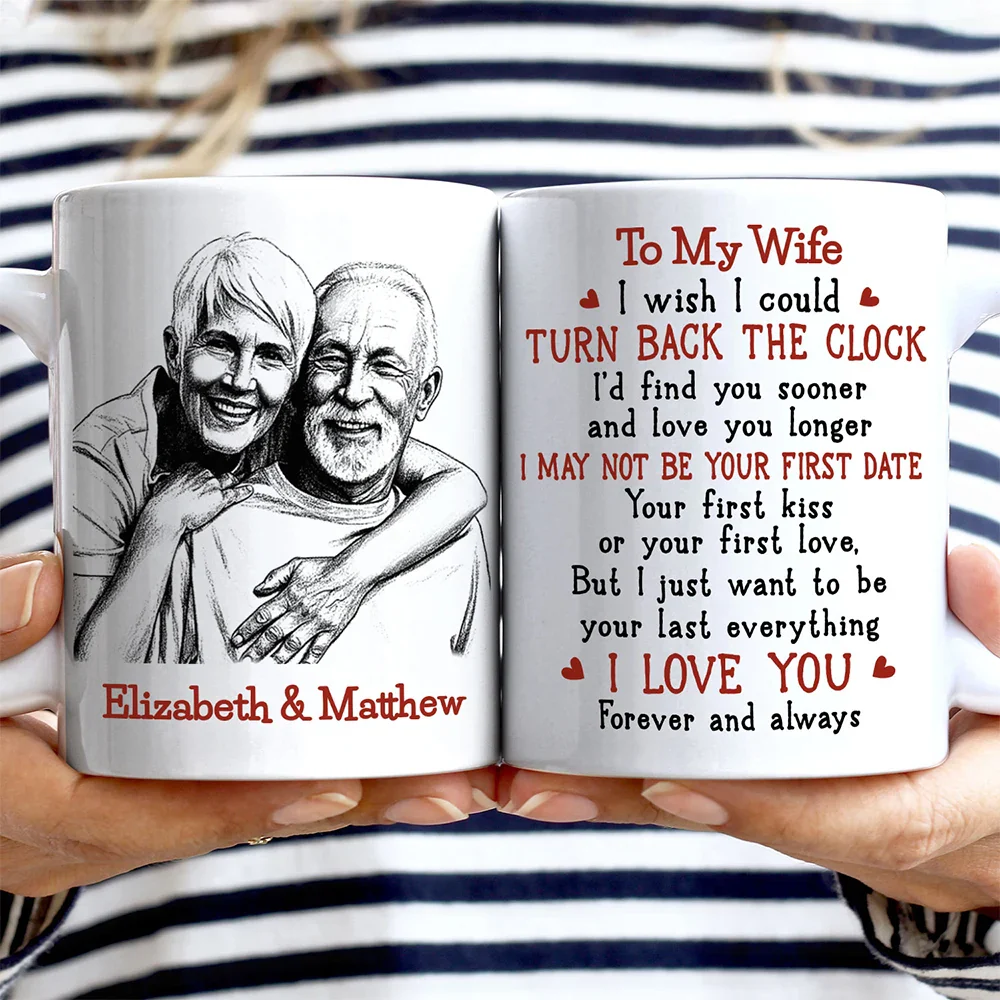 Elizabeth & Matthew
To My Wife
I wish I could
TURN BACK THE CLOCK
I'd find you sooner
and love you longer
I MAY NOT BE YOUR FIRST DATE
Your first kiss
or your first love,
But I just want to be
your last everything
I LOVE YOU
Forever and always